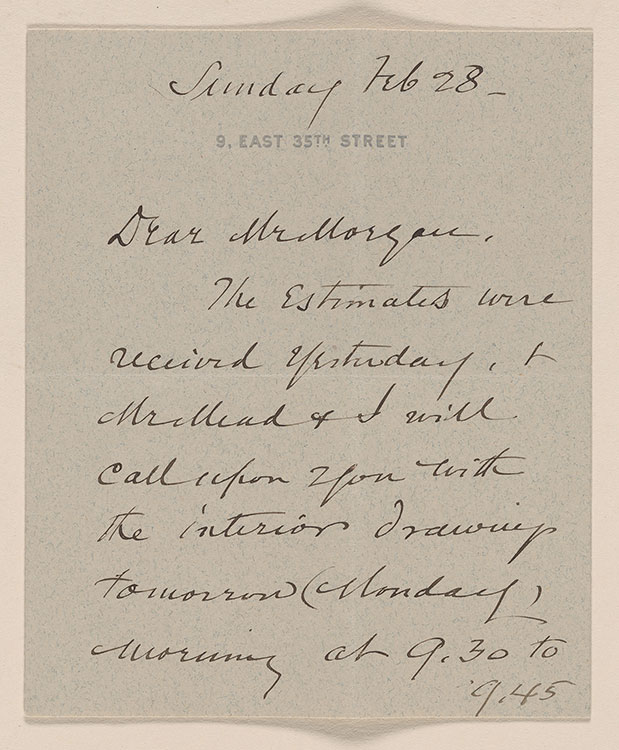 Sunday Feb 28 -
9, EAST 35TH STREET
Dear Mr Morgan,
The Estimates were
received yesterday, &
Mr Mead & I will
Call upon you with
the interior drawings
tomorrow (Monday)
Morning at 9.30 to
9.45